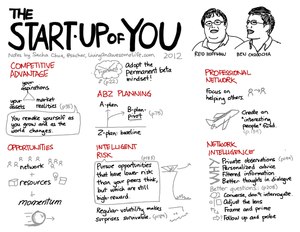 THE
START-UP OF YOU
Notes by Sacha Chua, @sachac, LivingAnAwesomeLife.com 2012
REID HOFFMAN
BEN CASNOCHA
COMPETITIVE
ADVANTAGE
your
aspirations
your
assets
market
realities
You remake yourself as
you grow and as the
world changes.
Adopt the
permanent beta
mindset!
ABZ PLANNING
A-plan:
B-plan:
pivot
Z-plan: baseline
PROFESSIONAL
NETWORK
Focus on
helping others.
Create an
"interesting
people" fund.
OPPORTUNITIES
network
+
resources
+
momentum
INTELLIGENT
RISK
Pursue opportunities
that have lower risk
than your peers think,
but which are still
high-reward.
Regular volatility makes
surprises survivable.
NETWORK
INTELLIGENCE
WHY
Private observations
Personalized advice
Filtered information
Better thoughts in dialogue
Better questions:
HOW
Converse, don't interrogate
Adjust the lens
Frame and prime
Follow up and probe